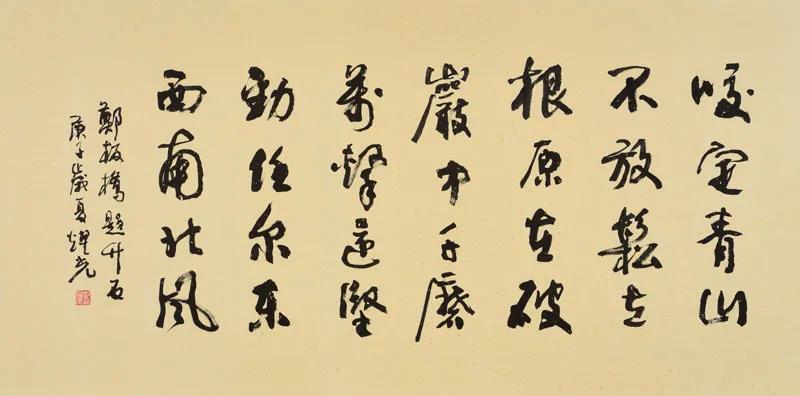 咬定青山
不放鬆立
根原在破
巖中千磨
萬擊還堅
勁任尔東
西南北風
鄭板橋題竹石
庚子歲夏耀